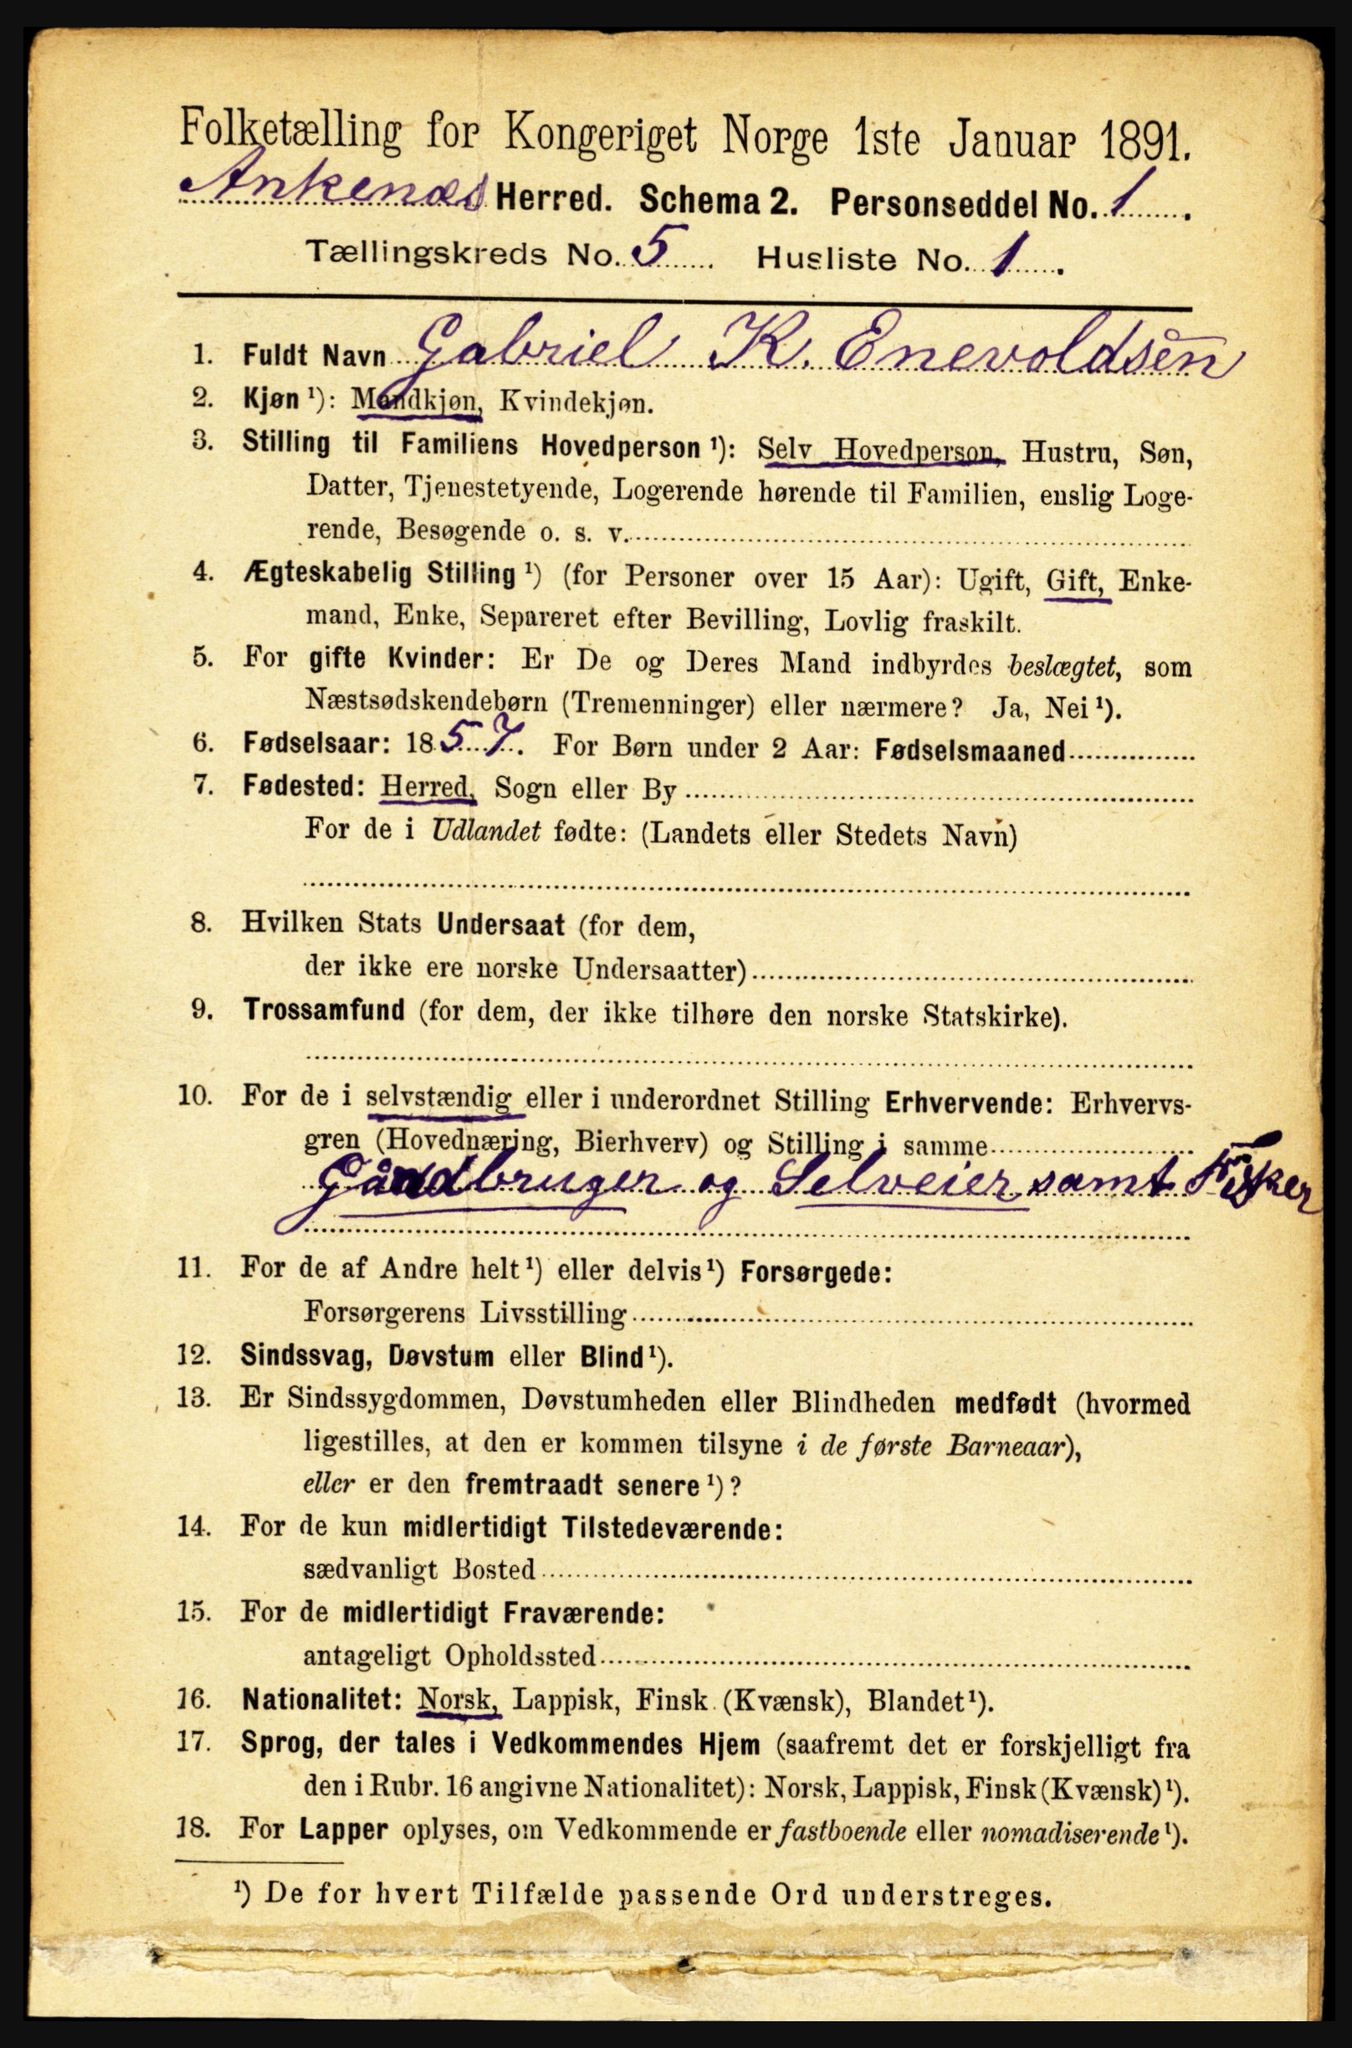 Folketælling for Kongeriget Norge 1ste Januar 1891.
Ankenæs Herred. Schema 2. Personseddel No. 1.
Tællingskreds No. 5. Husliste No. 1.
1. Fuldt Navn Gabriel K. Enevoldsen
2. Kjøn ¹): Mandkjøn, Kvindekjøn.
3. Stilling til Familiens Hovedperson ¹): Selv Hovedperson, Hustru, Søn,
Datter, Tjenestetyende, Logerende hørende til Familien, enslig Loge-
rende, Besøgende o. s. v.
4. Ægteskabelig Stilling ¹) (for Personer over 15 Aar): Ugift, Gift, Enke-
mand, Enke, Separeret efter Bevilling, Lovlig fraskilt.
5. For gifte Kvinder: Er De og Deres Mand indbyrdes beslægtet, som
Næstsødskendebørn (Tremenninger) eller nærmere? Ja, Nei ¹).
6. Fødselsaar: 1857. For Børn under 2 Aar: Fødselsmaaned
7. Fødested: Herred, Sogn eller By
For de i Udlandet fødte: (Landets eller Stedets Navn)
8. Hvilken Stats Undersaat (for dem,
der ikke ere norske Undersaatter)
9. Trossamfund (for dem, der ikke tilhøre den norske Statskirke).
10. For de i selvstændig eller i underordnet Stilling Erhvervende: Erhvervs-
gren (Hovednæring, Bierhverv) og Stilling i samme
Gårdbruger og Selveier samt Fisker
11. For de af Andre helt ¹) eller delvis ¹) Forsørgede:
Forsørgerens Livsstilling
12. Sindssvag, Døvstum eller Blind ¹).
13. Er Sindssygdommen, Døvstumheden eller Blindheden medfødt (hvormed
ligestilles, at den er kommen tilsyne i de første Barneaar),
eller er den fremtraadt senere ¹)?
14. For de kun midlertidigt Tilstedeværende:
sædvanligt Bosted
15. For de midlertidigt Fraværende:
antageligt Opholdssted
16. Nationalitet: Norsk, Lappisk, Finsk (Kvænsk), Blandet ¹).
17. Sprog, der tales i Vedkommendes Hjem (saafremt det er forskjelligt fra
den i Rubr. 16 angivne Nationalitet): Norsk, Lappisk, Finsk (Kvænsk) ¹).
18. For Lapper oplyses, om Vedkommende er fastboende eller nomadiserende ¹).
¹) De for hvert Tilfælde passende Ord understreges.